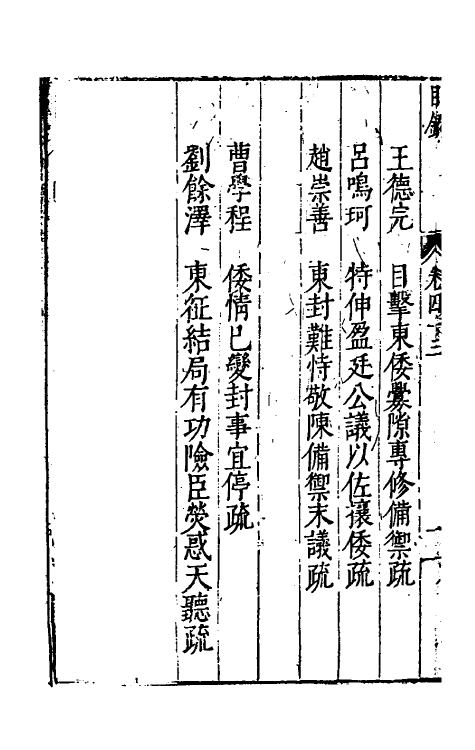 目錄 卷四百二
王德完 目擊東倭釁隙專修備禦疏
呂鳴珂 特伸盈廷公議以佐攘倭疏
趙崇善 東封難恃敬陳備禦末議疏
曹學程 倭情已變封事宜停疏
劉餘澤 東征結局有功險臣熒惑天聽疏